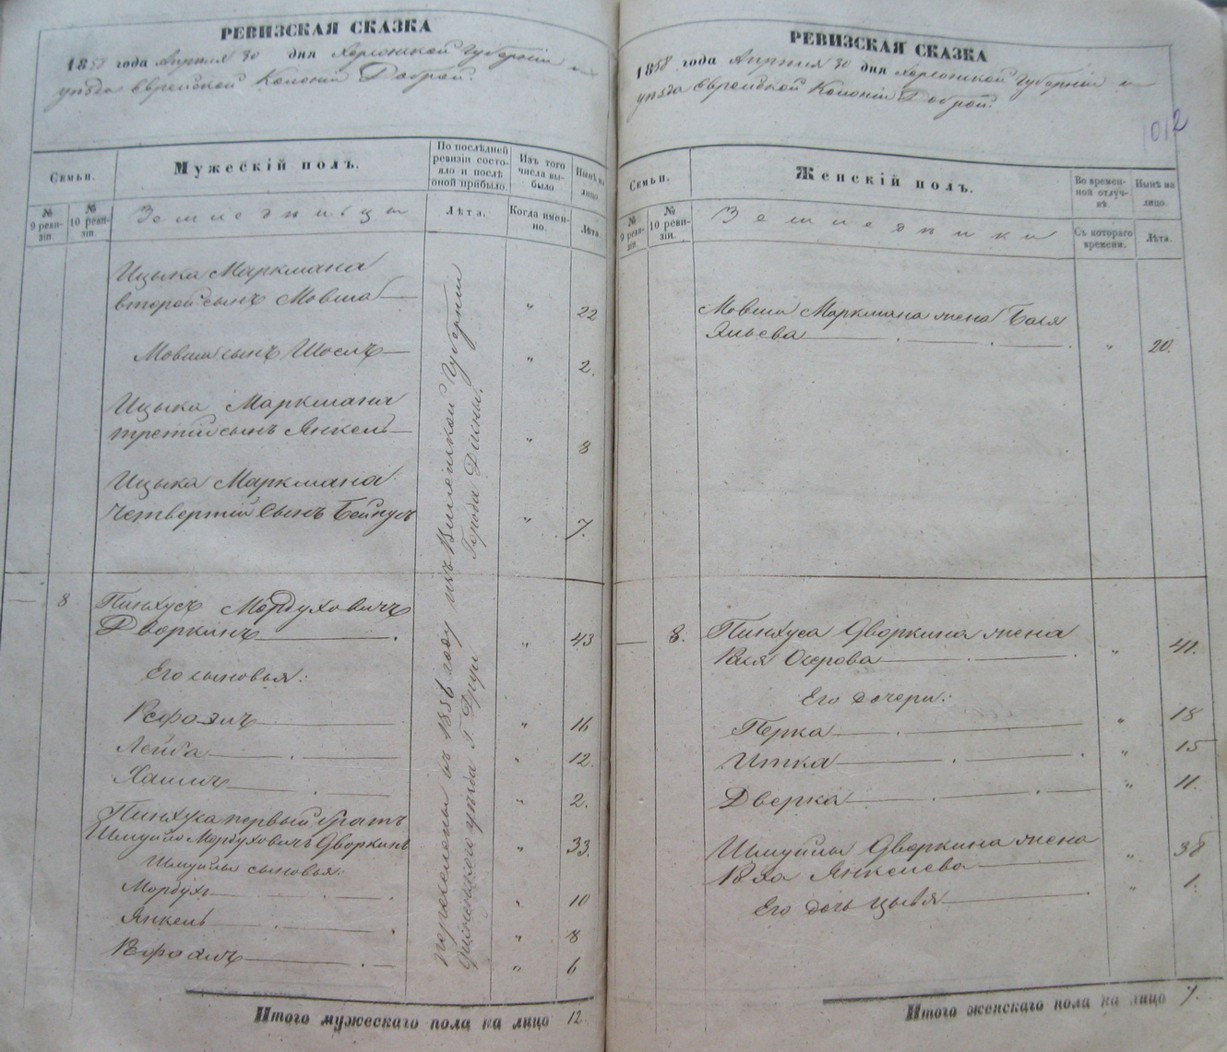 РЕВИЗСКАЯ СКАЗКА
1858 года Апрѣля 30 дня Херсонской Губерніи и
уѣзда Еврейской Колоніи Доброй.
Семьи.
Мужескій полъ.
По послѣдней ревизіи состояло и послѣ оной прибыло.
Изъ того числа выбыло.
Нынѣ на лицо.
№ 9 ревизіи.
№ 10 ревизіи.
Земледѣльцы
Лѣта.
Когда именно.
Лѣта.
Ицыка Маркмана
второй сынъ Мовша 22
Мовши сынъ Иосель 2.
Ицыка Маркмана
третій сынъ Янкель 8
Ицыка Маркмана
четвертый сынъ Бейнусъ 7.
8 Пинхусъ Мордуховичъ
Дворкинъ 43
Его сыновья:
Рефоэлъ 16
Лейба 12.
Хаимъ 2.
Пинхуса первый братъ
Шмуйло Мордуховичъ Дворкинъ 33.
Шмуйлы сыновья:
Мордухъ 10
Янкель 8
Рефоэлъ 6
переселены въ 185 году изъ Виленской Губерніи
Дисненскаго уѣзда Города Дисны.
Итого мужескаго пола на лицо 12
РЕВИЗСКАЯ СКАЗКА
1858 года Апрѣля 30 дня Херсонской Губерніи и
уѣзда Еврейской Колоніи Доброй.
1012
Семьи.
Женскій полъ.
Во временной отлучкѣ.
Нынѣ на лицо.
№ 9 ревизіи.
№ 10 ревизіи.
Земледѣлки
Съ котораго времени.
Лѣта.
Мовши Маркмана жена Бася
20.
8. Пинхуса Дворкина жена
Рася Осерова 41.
Его дочери:
Перка 18
Итка 15
Дверка 11.
Шмуйлы Дворкина жена
Янкелева 38
Его дочь Цывья 1.
Итого женскаго пола на лицо 7.